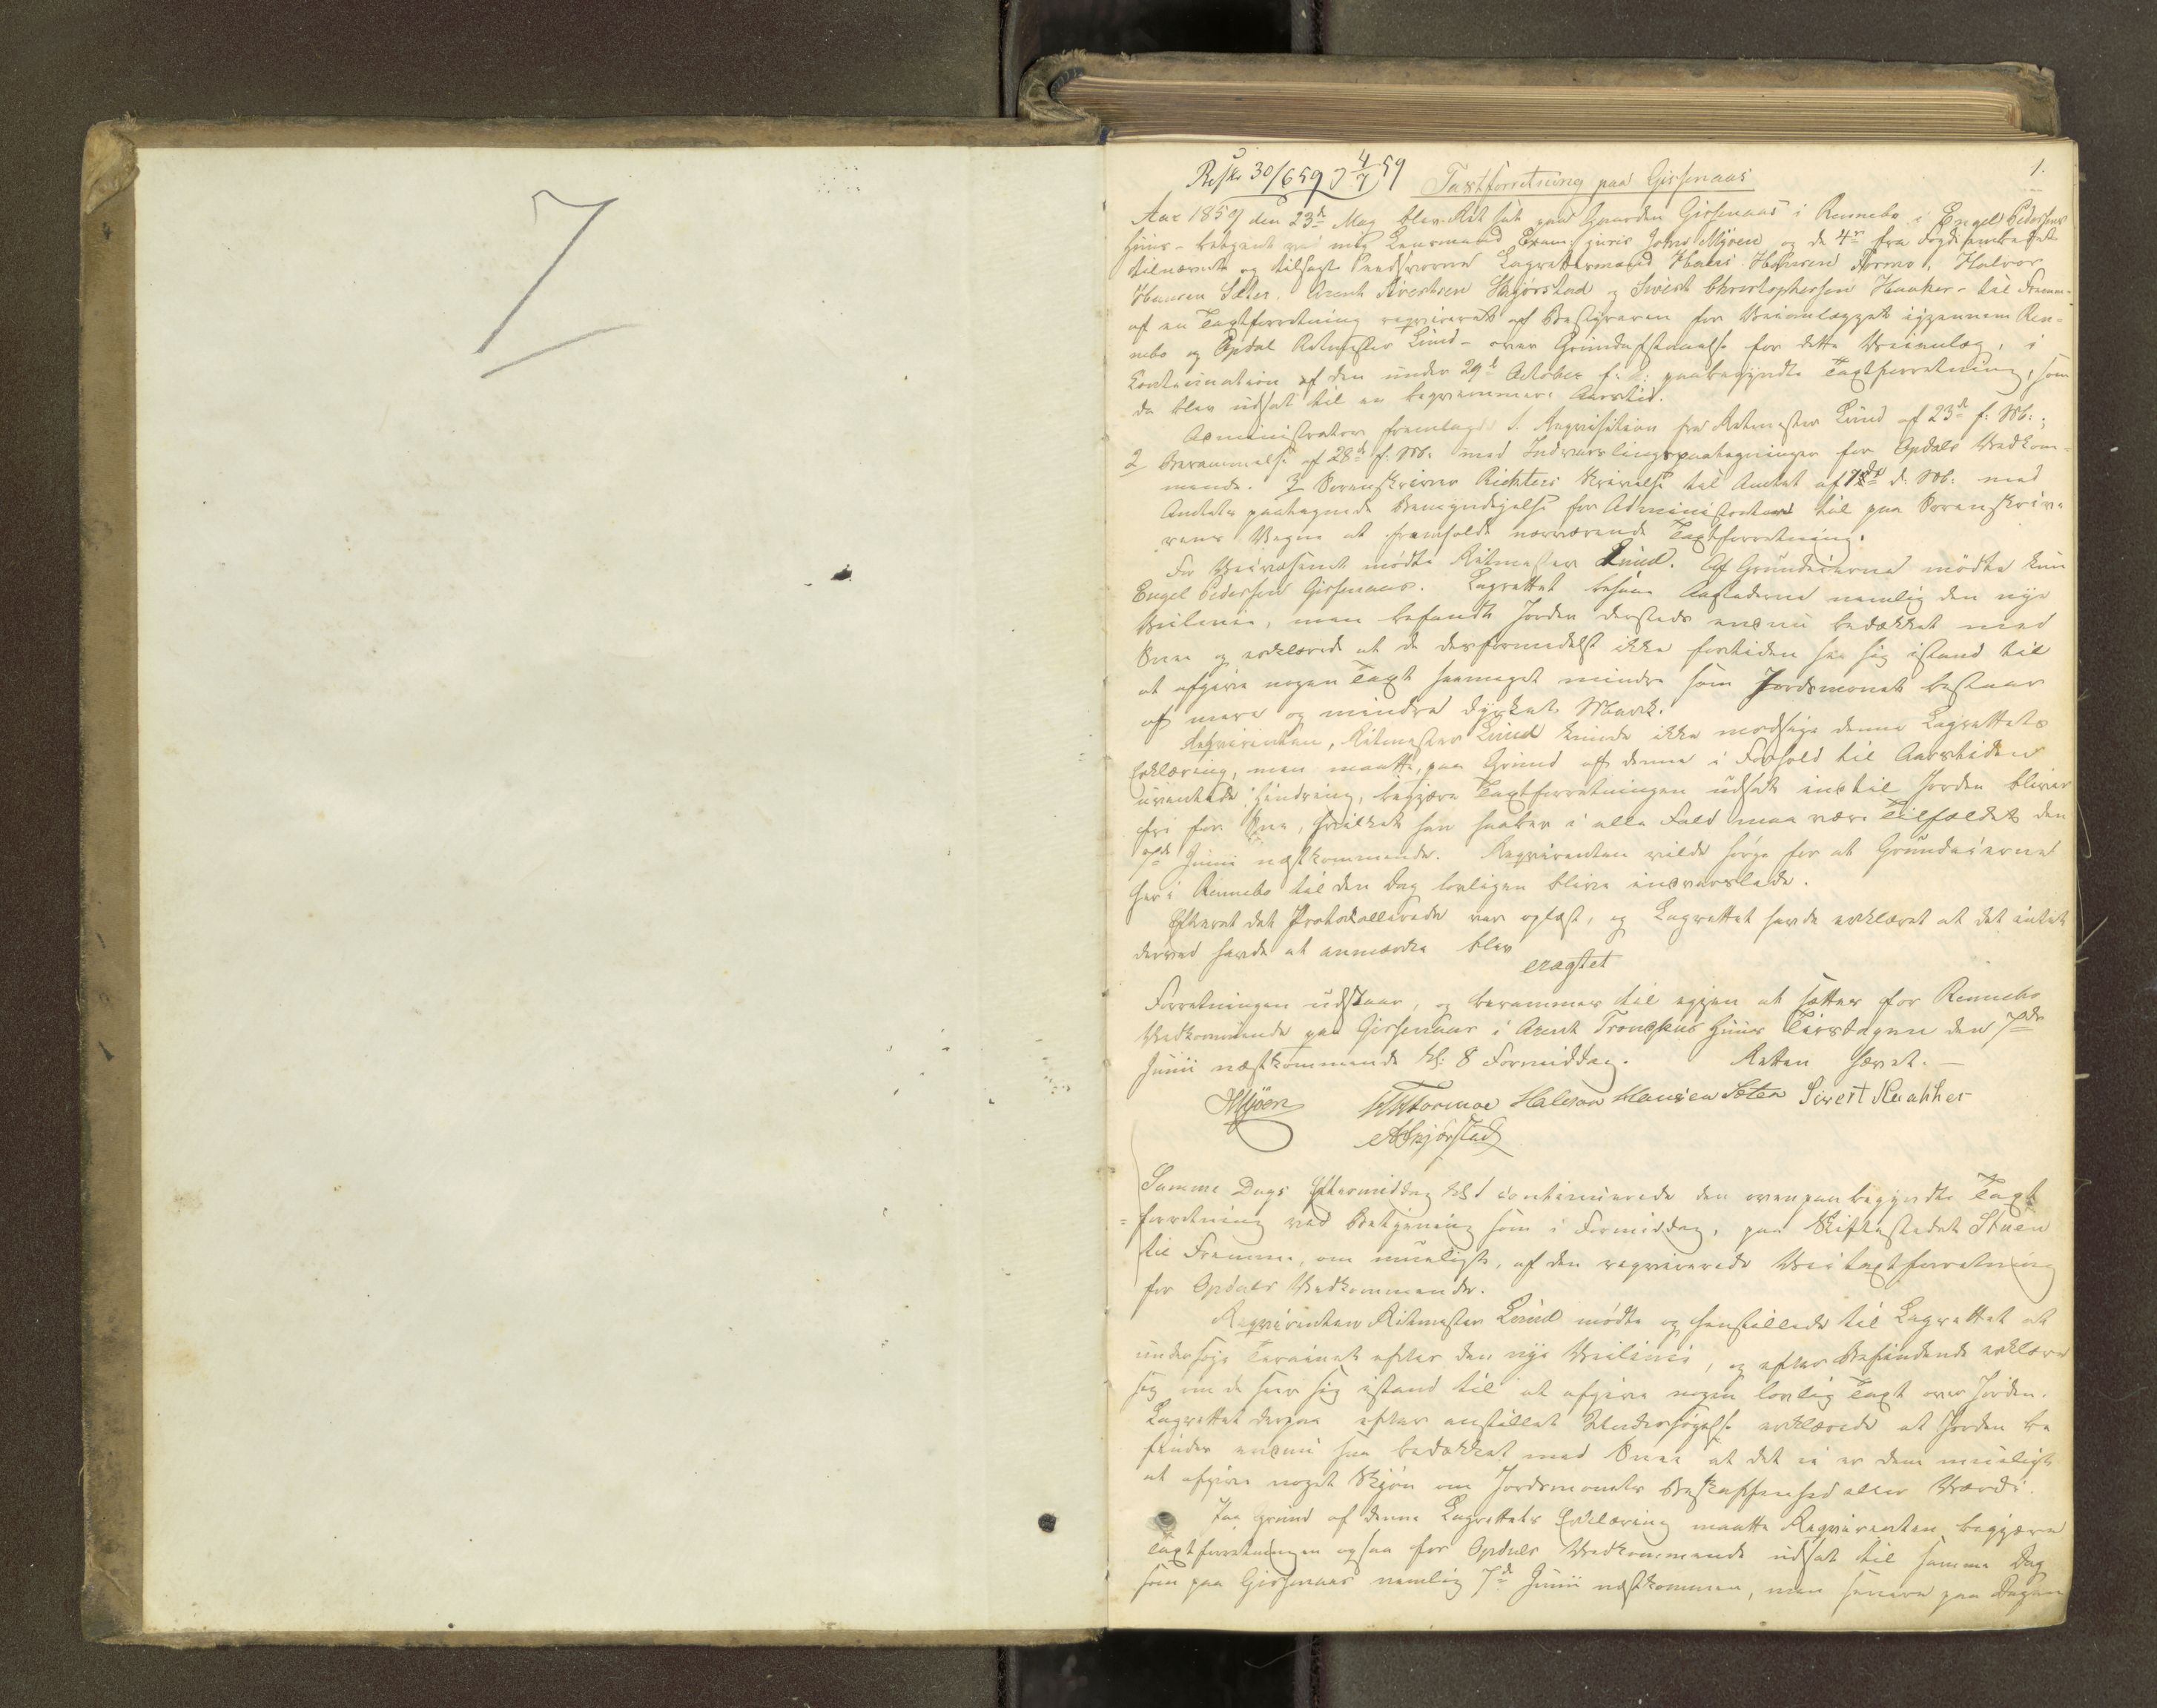 7
1.
Beskr 30/6 59 J 4/7 59 Taxtforretning paa Gisnaas
Aar 1859 den 23de May blev Ret sat paa Gaarden Gisnaas i Rennebo i Engel Pedersens
Huus - betjent ved mig Lensmand Exam: juris John Mjøen og de 4re fra Fogdembedet
tilnævnte og tilsagte Eedsvorne Lagrettesmænd Hans Hansen Tormo, Halvor
Hansen Sæter, Arent Sivertsen Skjørstad og Sivert Christophersen Haaker - til Fremme
af en Taxtforretning reqvireret af Bestyreren for Veianlægget igjennem Ren-
nebo og Opdal Ritmester Lund - over Grundafstaaelse for dette Veianlæg, i
Continuation af den under 29de October f: A: paabegyndte Taxtforretning, som
da blev udsat til en beqvemmere Aarstid.
Administrator fremlagde 1. Reqvisition fra Ritmester Lund af 23de f: M:;
2 Berammelse af 28de f: M: med Indvarslingspaategninger for Opdals Vedkom-
mende. 3 Sorenskriver Richters Skrivelse til Amtet af 17de d: M: med
Amtets paategnede Bemyndigelse for Administrator til paa Sorenskrive-
rens Vegne at fremholde nærværende Taxtforretning.
For Veivæsenet mødte Ritmester Lund. Af Grundeierne mødte kun
Engel Pedersen Gisnaas. Lagrettet besaae Aastederne nemlig den nye
Veilinie, men befandt Jorden dersteds endnu bedækket med
Snee og erklærede at de derformedelst ikke fortiden saa sig istand til
at afgive nogen Taxt saameget mindre som Jordsmonet bestaar
af mere og mindre dyrket Mark.
Reqvirenten, Ritmester Lund kunde ikke modsige denne Lagrettets
Erklæring, men maatte, paa Grund af denne i Forhold til Aarstiden
uventede Hindring, begjære Taxtforretningen udsat indtil Jorden bliver
fri for Snee, hvilket han haaber i alle Fald maa være Tilfældet den
7de Junii næstkommende. Reqvirenten vilde sørge for at Grundeierne
her i Rennebo til den Dag lovligen blive indvarslede.
Efterat det Protokollerede var oplæst, og Lagrettet havde erklæret at det intet
derved havde at anmærke blev
eragtet
Forretningen udstaar, og berammes til igjen at sættes for Rennebo
Vedkommende paa Gisnaas i Arent Tronsens Huus Tirsdagen den 7de
Junii næstkommende Kl: 8 Formiddag. Retten hævet. -
JMjøen HHTormoe Halvor Hansen Sæter Sivert Haakker
ASkjørstad
Samme Dags Eftermiddag Kl 1 continuerede den ovenpaabegyndte Taxt
= forretning ved Betjening som i Formiddag, paa Skiftestedet Stuen
til Fremme, om mueligt, af den reqvirerede Veitaxtforretning
for Opdals Vedkommende.
Reqvirenten Ritmester Lund mødte og henstillede til Lagrettet at
undersøge Terrainet efter den nye Veilinie, og efter Befindende erklære
sig om de saae sig istand til at afgive nogen lovlig Taxt over Jorden.
Lagrettet derpaa efter anstillet Undersøgelse erklærede at Jorden be
findes endnu saa bedækket med Snee at det ei er dem mueligt
at afgive noget Skjøn om Jordsmonets Beskaffenhed eller Værdi.
Paa Grund af denne Lagrettets Erklæring maatte Reqvirenten begjære
Taxtforretningen ogsaa for Opdals Vedkommende udsat til samme Dag
som paa Gisnaas nemlig 7de Junii næstkommen, men senere paa Dagen